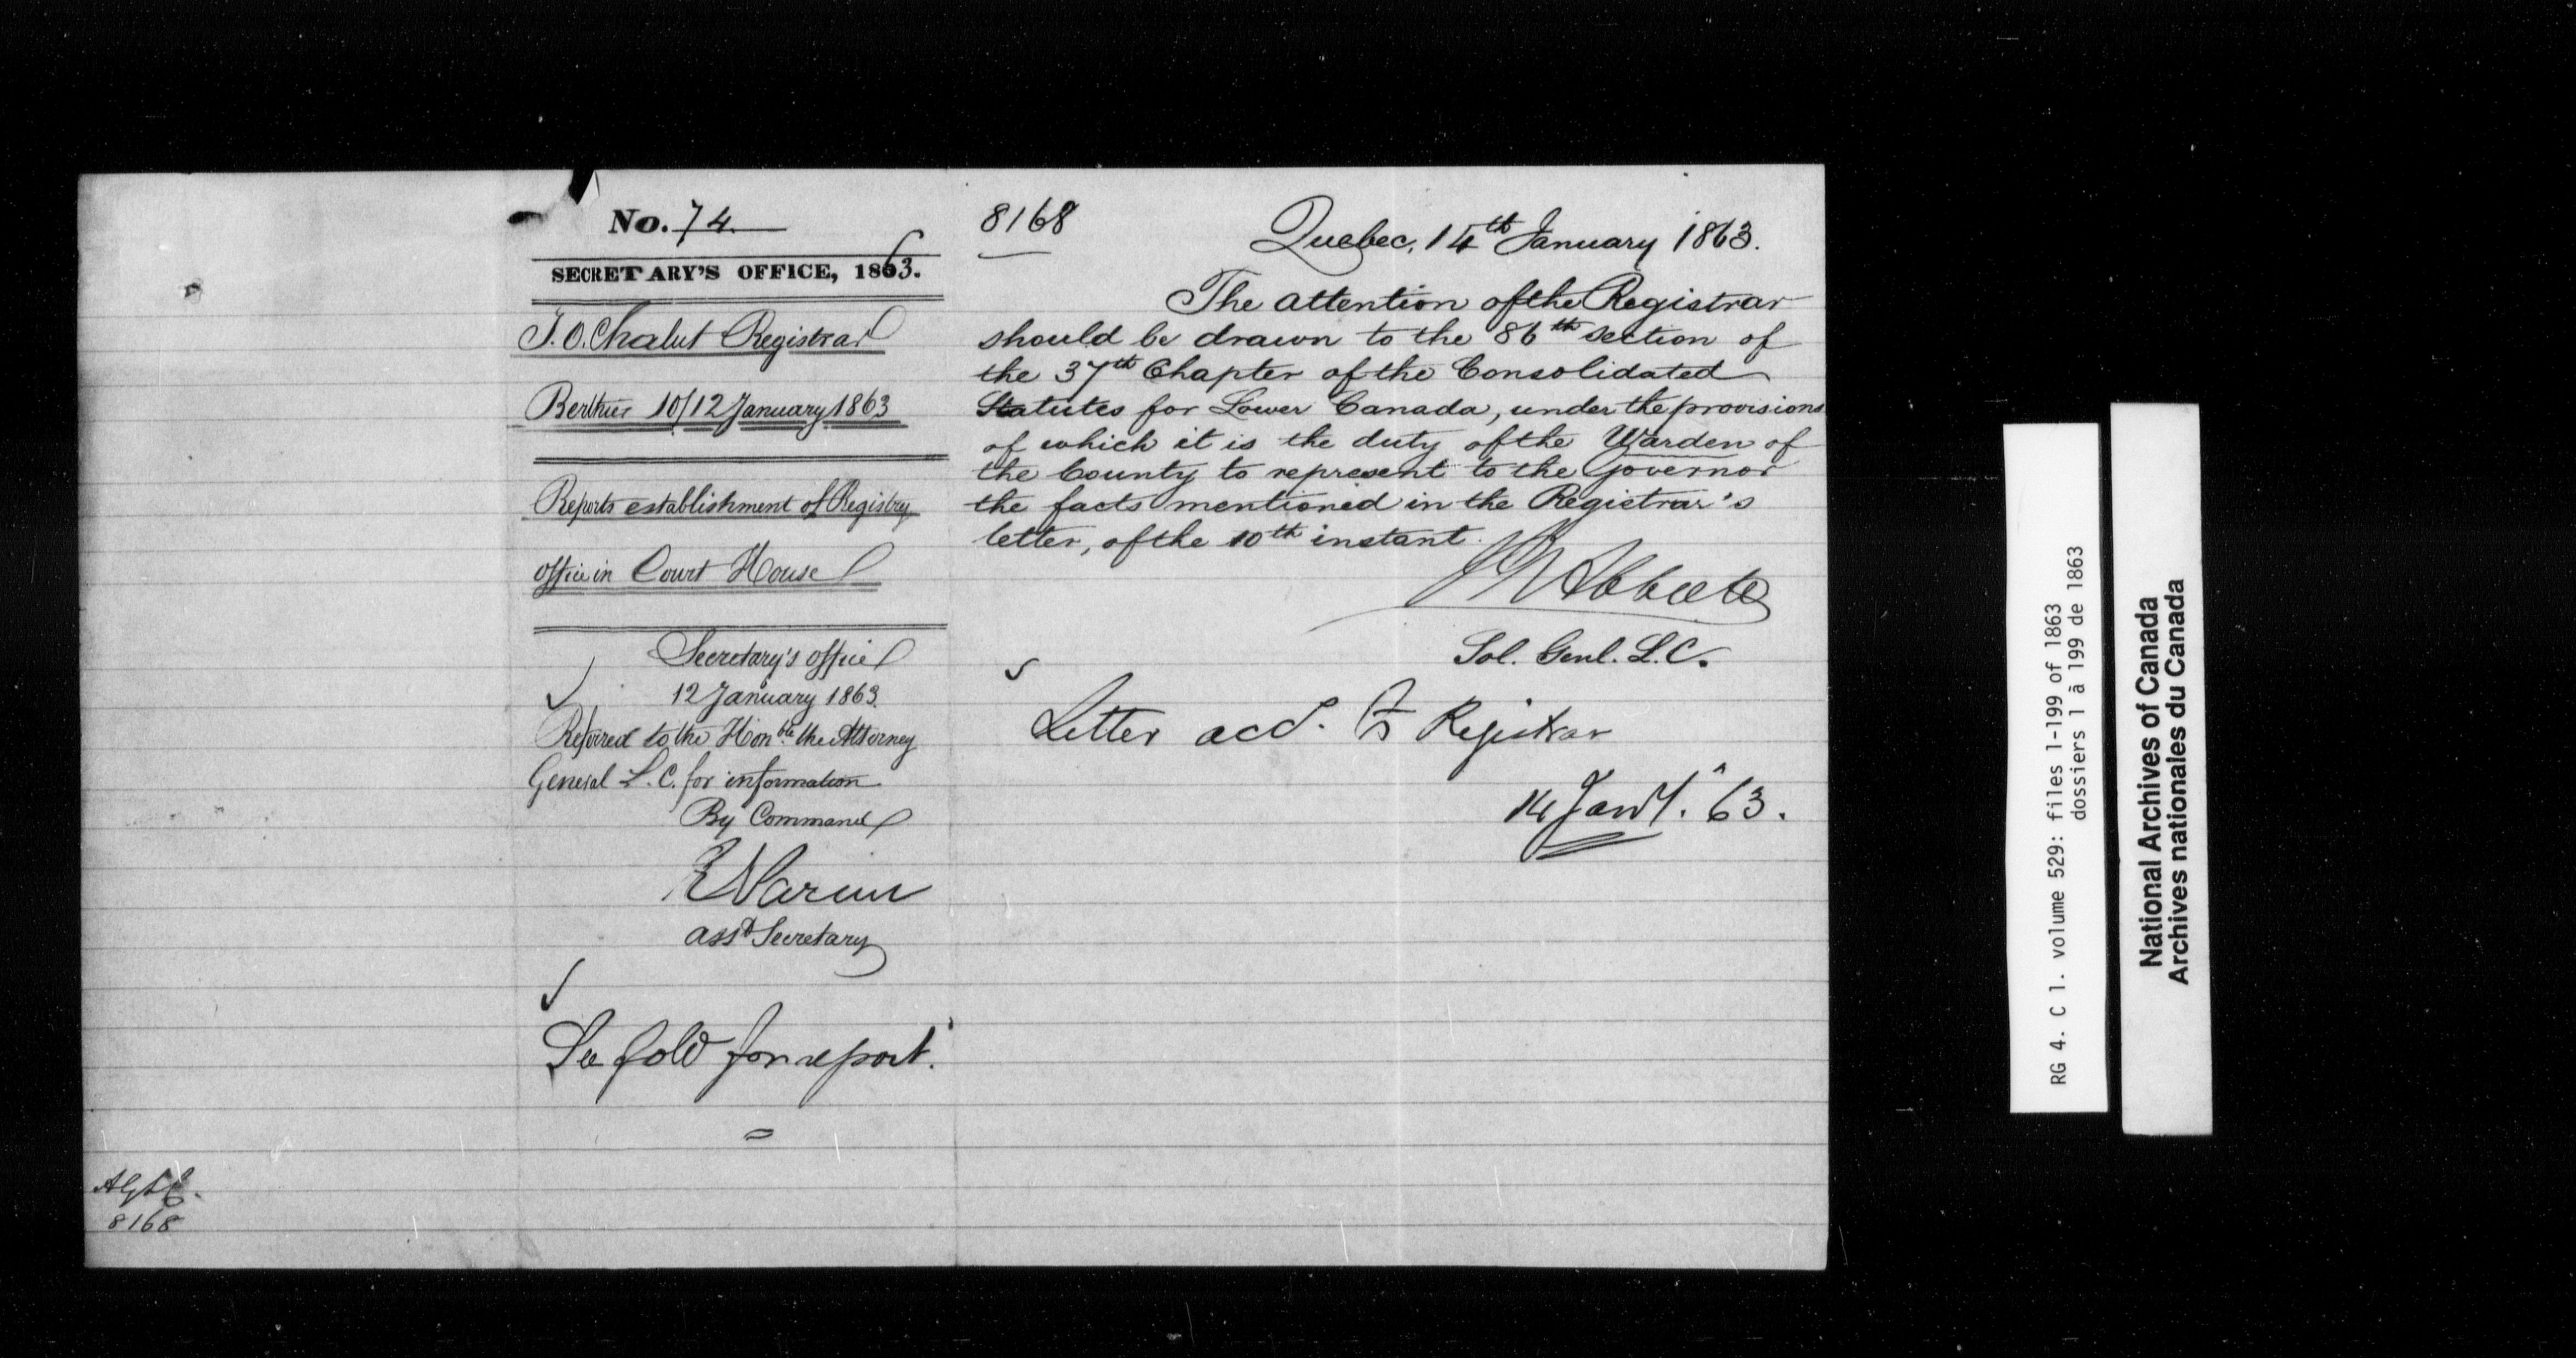 No. 74.
SECRETARY'S OFFICE, 1863.
J. O. Chalut Registrar
Berthier 10/12 January 1863
Reports establishment of Registry
office in Court House
Secretary's office
12 January 1863.
Referred to the Honble the Attorney
General L. C. for information
By Command
E Parent
asst Secretary
See fold for report.
A G L C.
8168
8168
Quebec, 14th January 1863.
The attention of the Registrar
should be drawn to the 86th section of
the 37th Chapter of the Consolidated
Statutes for Lower Canada, under the provisions
of which it is the duty of the Warden of
the County to represent to the Governor
the facts mentioned in the Registrar's
letter, of the 10th instant.
J J C Abbott
Sol. Genl. L.C.
Letter acd. to Registrar
14 Jany. 63.
RG 4. C 1. volume 529: files 1-199 of 1863
dossiers 1 à 199 de 1863
National Archives of Canada
Archives nationales du Canada